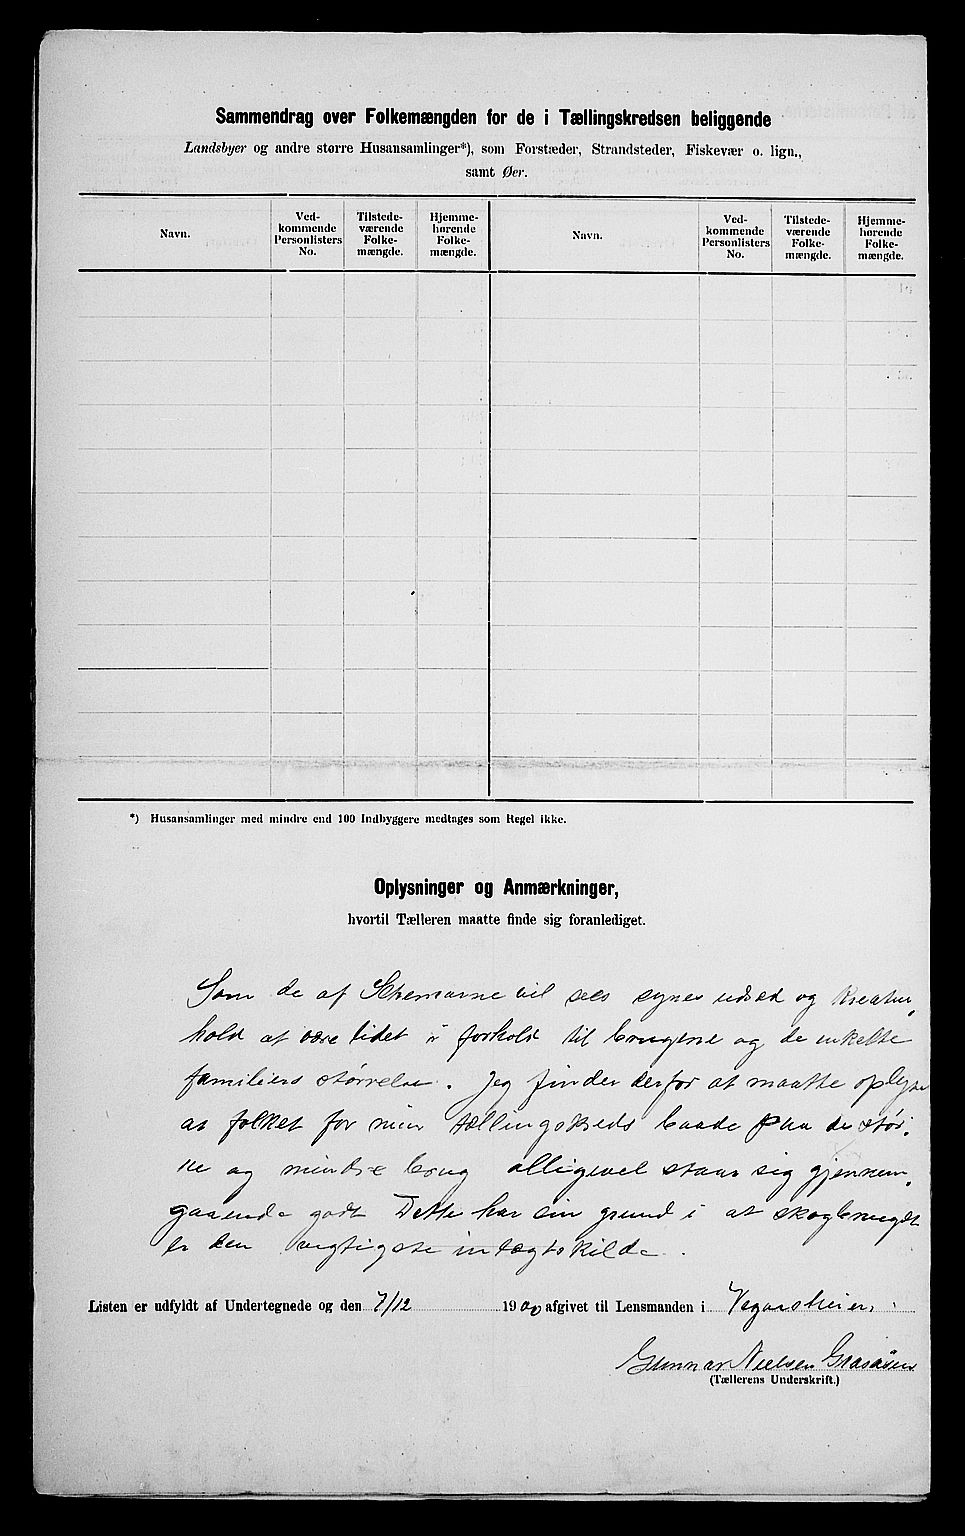 Sammendrag over Folkemængden for de i Tællingskredsen beliggende
Landsbyer og andre større Husansamlinger*), som Forstæder, Strandsteder, Fiskevær o. lign.,
samt Øer.
Navn.
Ved-
kommende
Personlisters
No.
Tilstede-
værende
Folke-
mængde.
Hjemme-
hørende
Folke-
mængde.
Navn.
Ved-
kommende
Personlisters
No.
Tilstede-
værende
Folke-
mængde.
Hjemme-
hørende
Folke-
mængde.
*) Husansamlinger med mindre end 100 Indbyggere medtages som Regel ikke.
Oplysninger og Anmærkninger,
hvortil Tælleren maatte finde sig foranlediget.
Som de af Schemarne vil sees synes udsæd og kreatur,
hold at være lidet i forhold til brugene og de enkelte
familiers størrelse. Jeg finder derfor at maatte oplyse
at folket for min tællingskreds baade paa de stør,
re og mindre brug alligevel staar sig gjennem,
gaaende godt Dette har sin grund i at skogbruget
er den vigtigste indtægtskilde.
Listen er udfyldt af Undertegnede og den 7/12 1900 afgivet til Lensmanden i Vegaarsheien.
Gunnar Nielsen
(Tællerens Underskrift.)